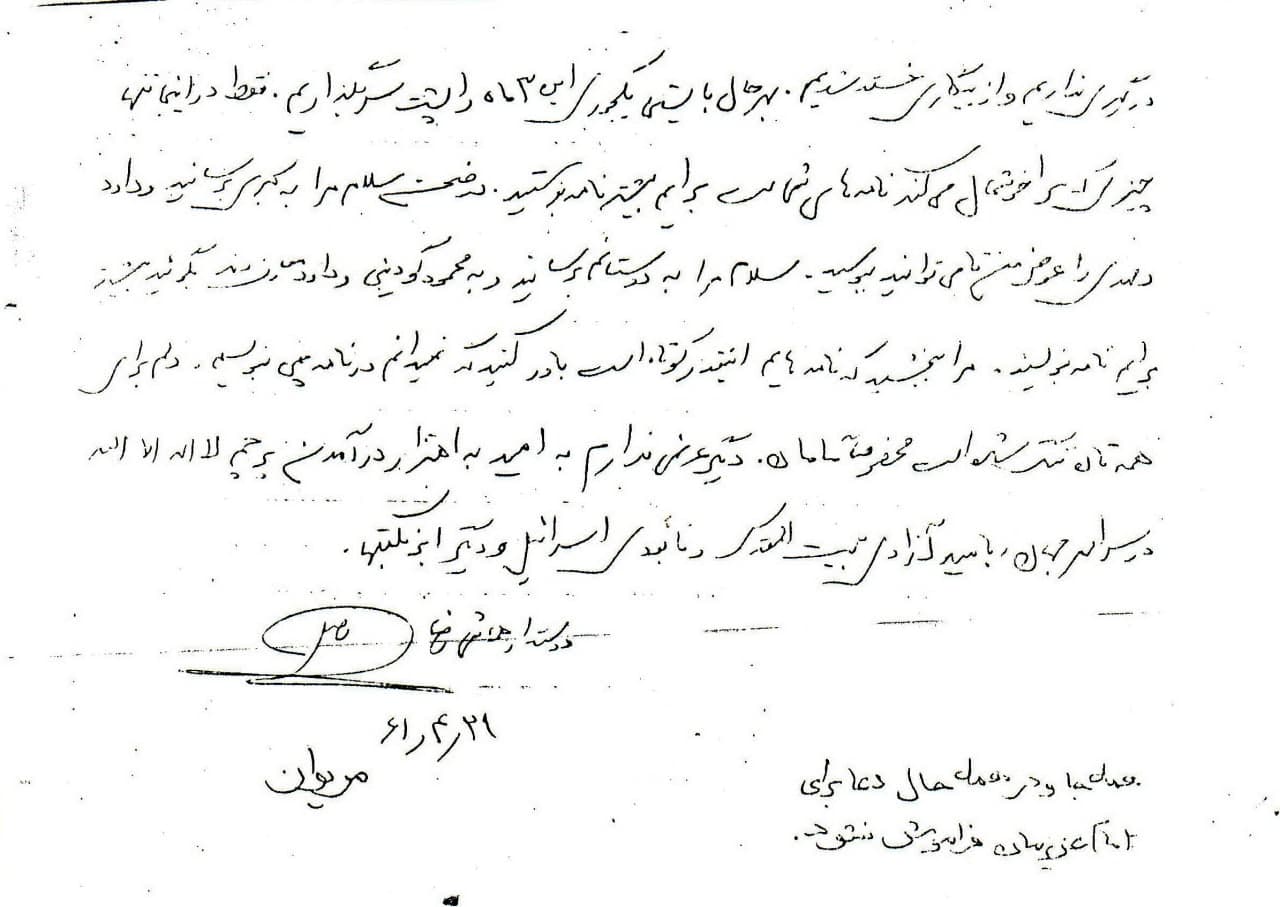 درگیری نداریم و از بیکاری خسته شدیم. بهرحال بایستی یکجوری این ۳ ماه را پشت سر بگذاریم. فقط در اینجا تنها
چیزی که مرا خوشحال می‌کند نامه‌های شماست برایم بیشتر نامه بنویسید. در ضمن سلام مرا به کبری برسانید و داود
و مهدی را عوض من تا می‌توانید ببوسید. سلام مرا به دوستانم برسانید و به محمود گودینی و داود بگوئید بیشتر
برایم نامه بنویسند. مرا ببخشید که نامه‌هایم اینقدر کوتاه است باور کنید که نمیدانم در نامه چی بنویسم. دلم برای
همه‌تان تنگ شده است مخصوصاً مامان. دیگر عرضی ندارم به امید به اهتزاز درآمدن پرچم لا اله الا الله
در سراسر جهان، بامید آزادی بیت المقدس و نابودی اسرائیل و دیگر ابرنکبتها.
دوستدار همه شما رضا
۶۱ر۴ر۲۹
مریوان
همه جا و در همه حال دعا برای
امام عزیزمان فراموش نشود.